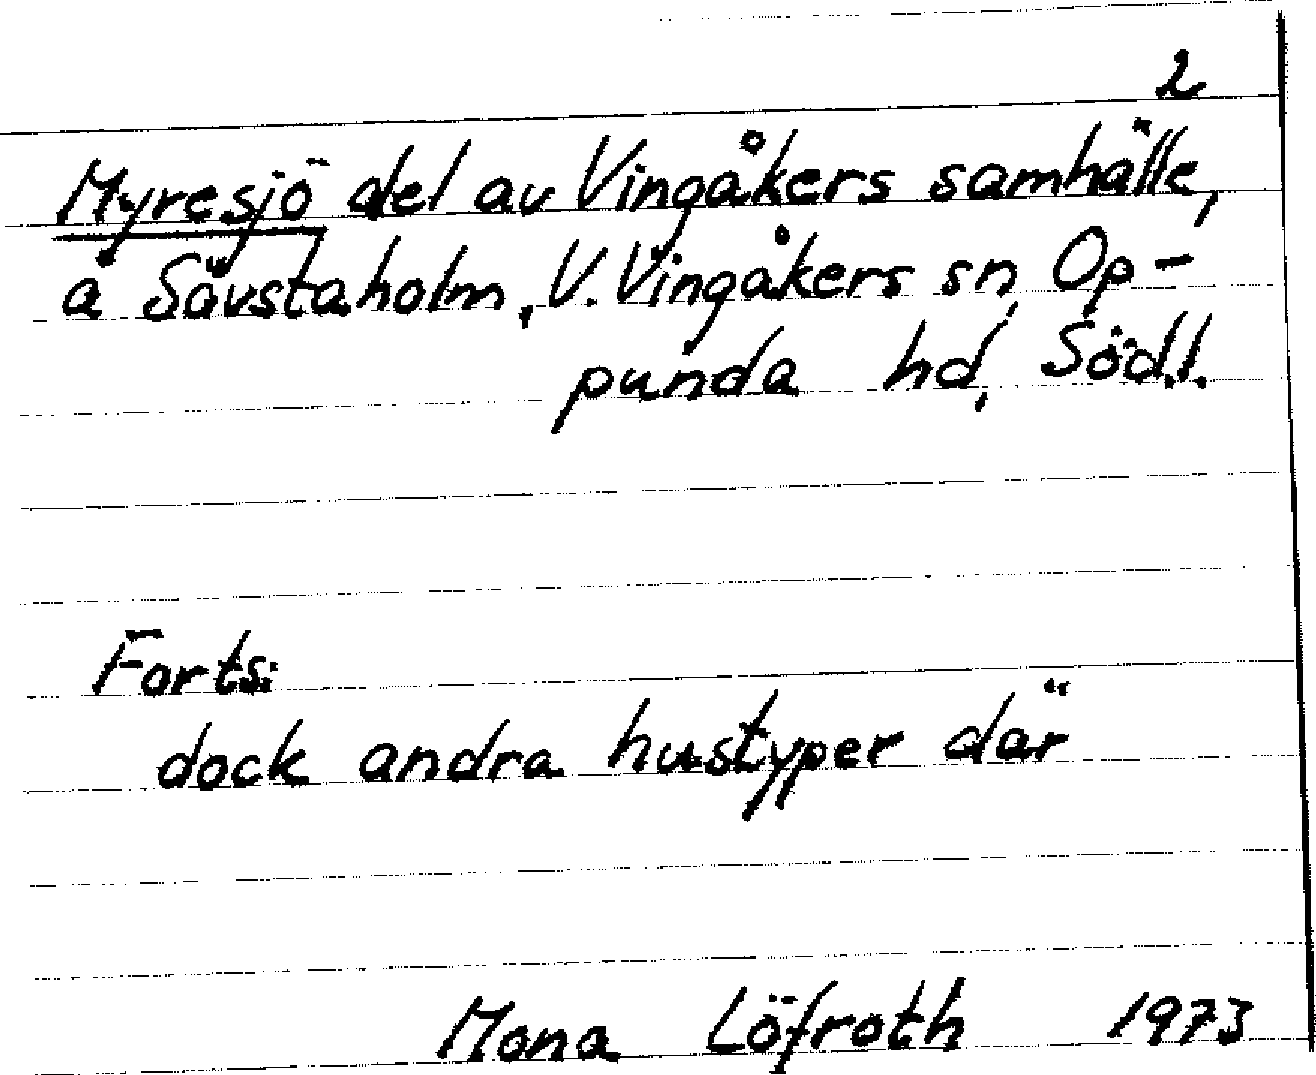 2
Myresjö del av Vingåkers samhälle,
å Sävstaholm, V. Vingåkers sn, Op-
punda hd, Söd.l.
Forts:
dock andra hustyper där
Mona Löfroth 1973